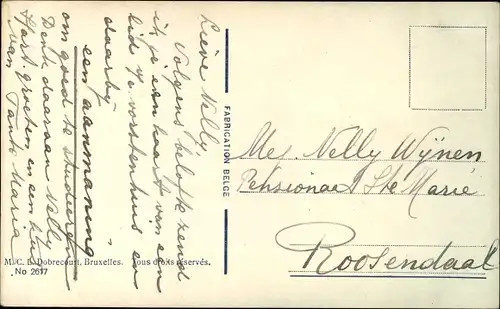 Lieve Nelly,
Volgens belofte zend
ik je een kaart van een
lid v/e vorstenhuis en
daarbij
een aanmaning
om goed te studeren
Denk daaraan Nelly
Hart. groeten en een
van Tante Marie
FABRICATION BELGE
Mej. Nelly Wijnen
Pensionaat Ste Marie
Roosendaal
M. C. L. Dobrecourt, Bruxelles. Tous droits réservés.
No 2617